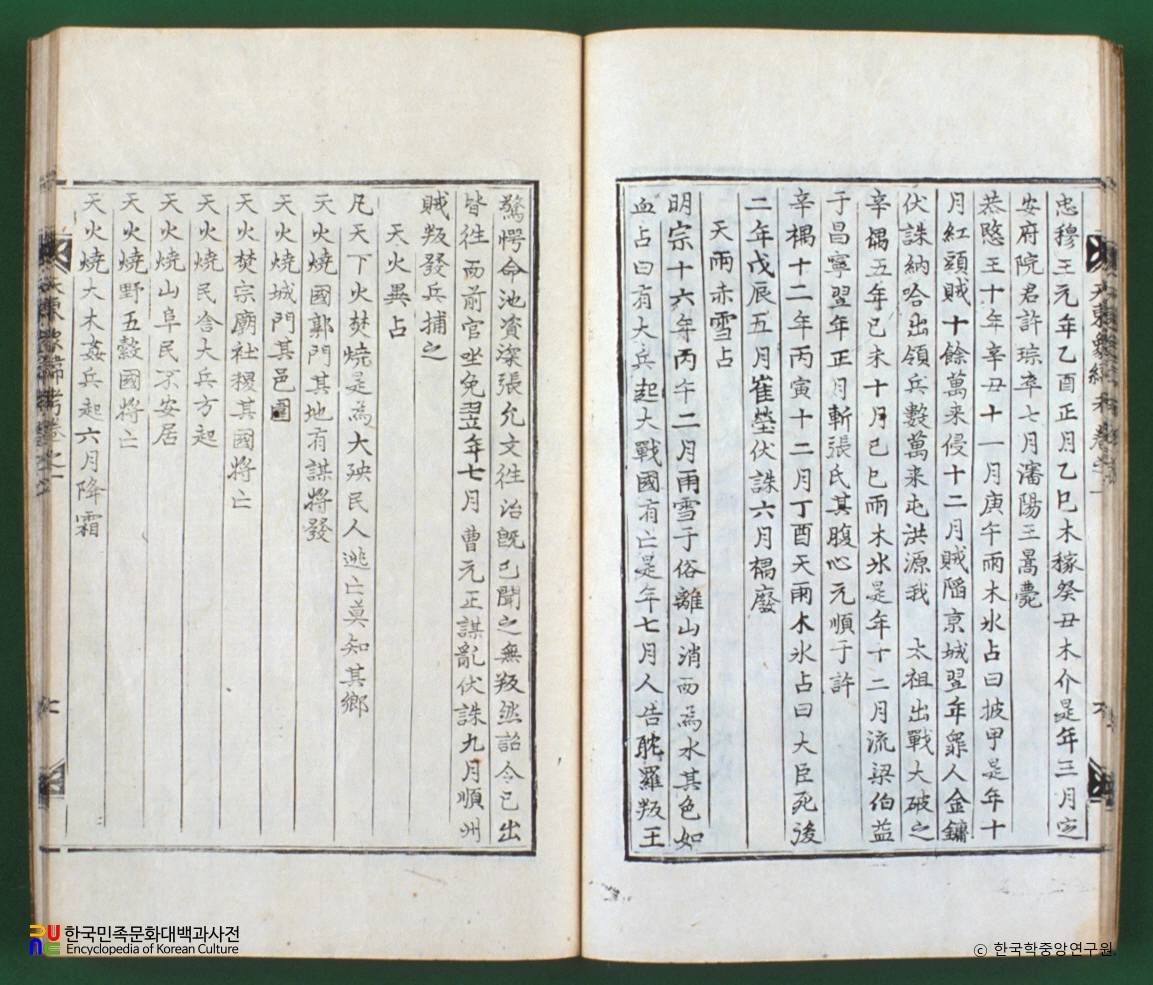 忠穆王元年乙酉正月乙巳木稼癸丑木介是年三月定
安府院君許琮卒七月瀋陽王暠薨
恭愍王十年辛丑十一月庚午雨木氷占曰披甲是年十
月紅頭賊十餘萬来侵十二月賊陷京城翌年罪人金鏞
伏誅納哈出領兵數萬来屯洪源我 太祖出戰大破之
辛禑五年己未十月己巳雨木氷是年十二月流梁伯益
于昌寧翌年正月斬張氏其腹心元順于許
辛禑十二年丙寅十二月丁酉天雨木氷占曰大臣死後
二年戊辰五月崔瑩伏誅六月禑廢
天雨赤雪占
明宗十六年丙午二月雨雪于俗離山消而為水其色如
血占曰有大兵起大戰國有亡是年七月人告耽羅叛王
驚愕命池資深張允文往治旣已聞之無叛然詔令已出
皆往而前官坐免翌年七月曹元正謀亂伏誅九月順州
賊叛發兵捕之
天火異占
凡天下火焚燒是為大殃民人逃亡莫知其鄉
天火燒國郭門其地有謀將發
天火燒城門其邑圍
天火焚宗廟社稷其國將亡
天火燒民舍大兵方起
天火燒山阜民不安居
天火燒野五穀國將亡
天火燒大木姦兵起六月降霜
한국민족문화대백과사전
Encyclopedia of Korean Culture
© 한국학중앙연구원